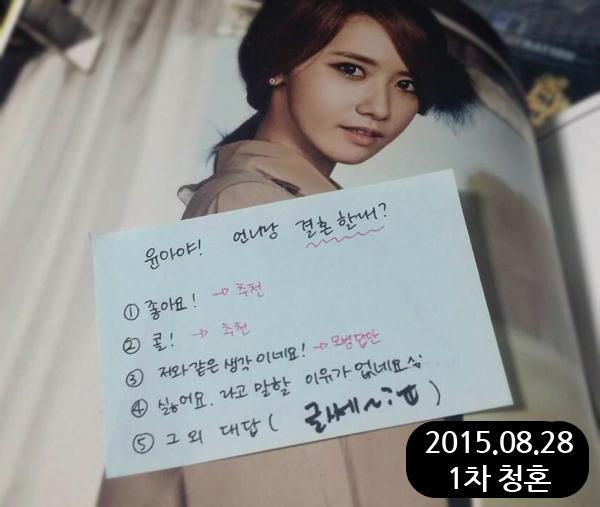 윤아야! 언니랑 결혼할래?
① 좋아요! → 추천
② 콜! → 추천
③ 저와 같은 생각이네요! → 모범답안
④ 싫어요. 라고 말할 이유가 없네요
⑤ 그 외 대답 ( 글쎄~ )
2015.08.28
1차 청혼